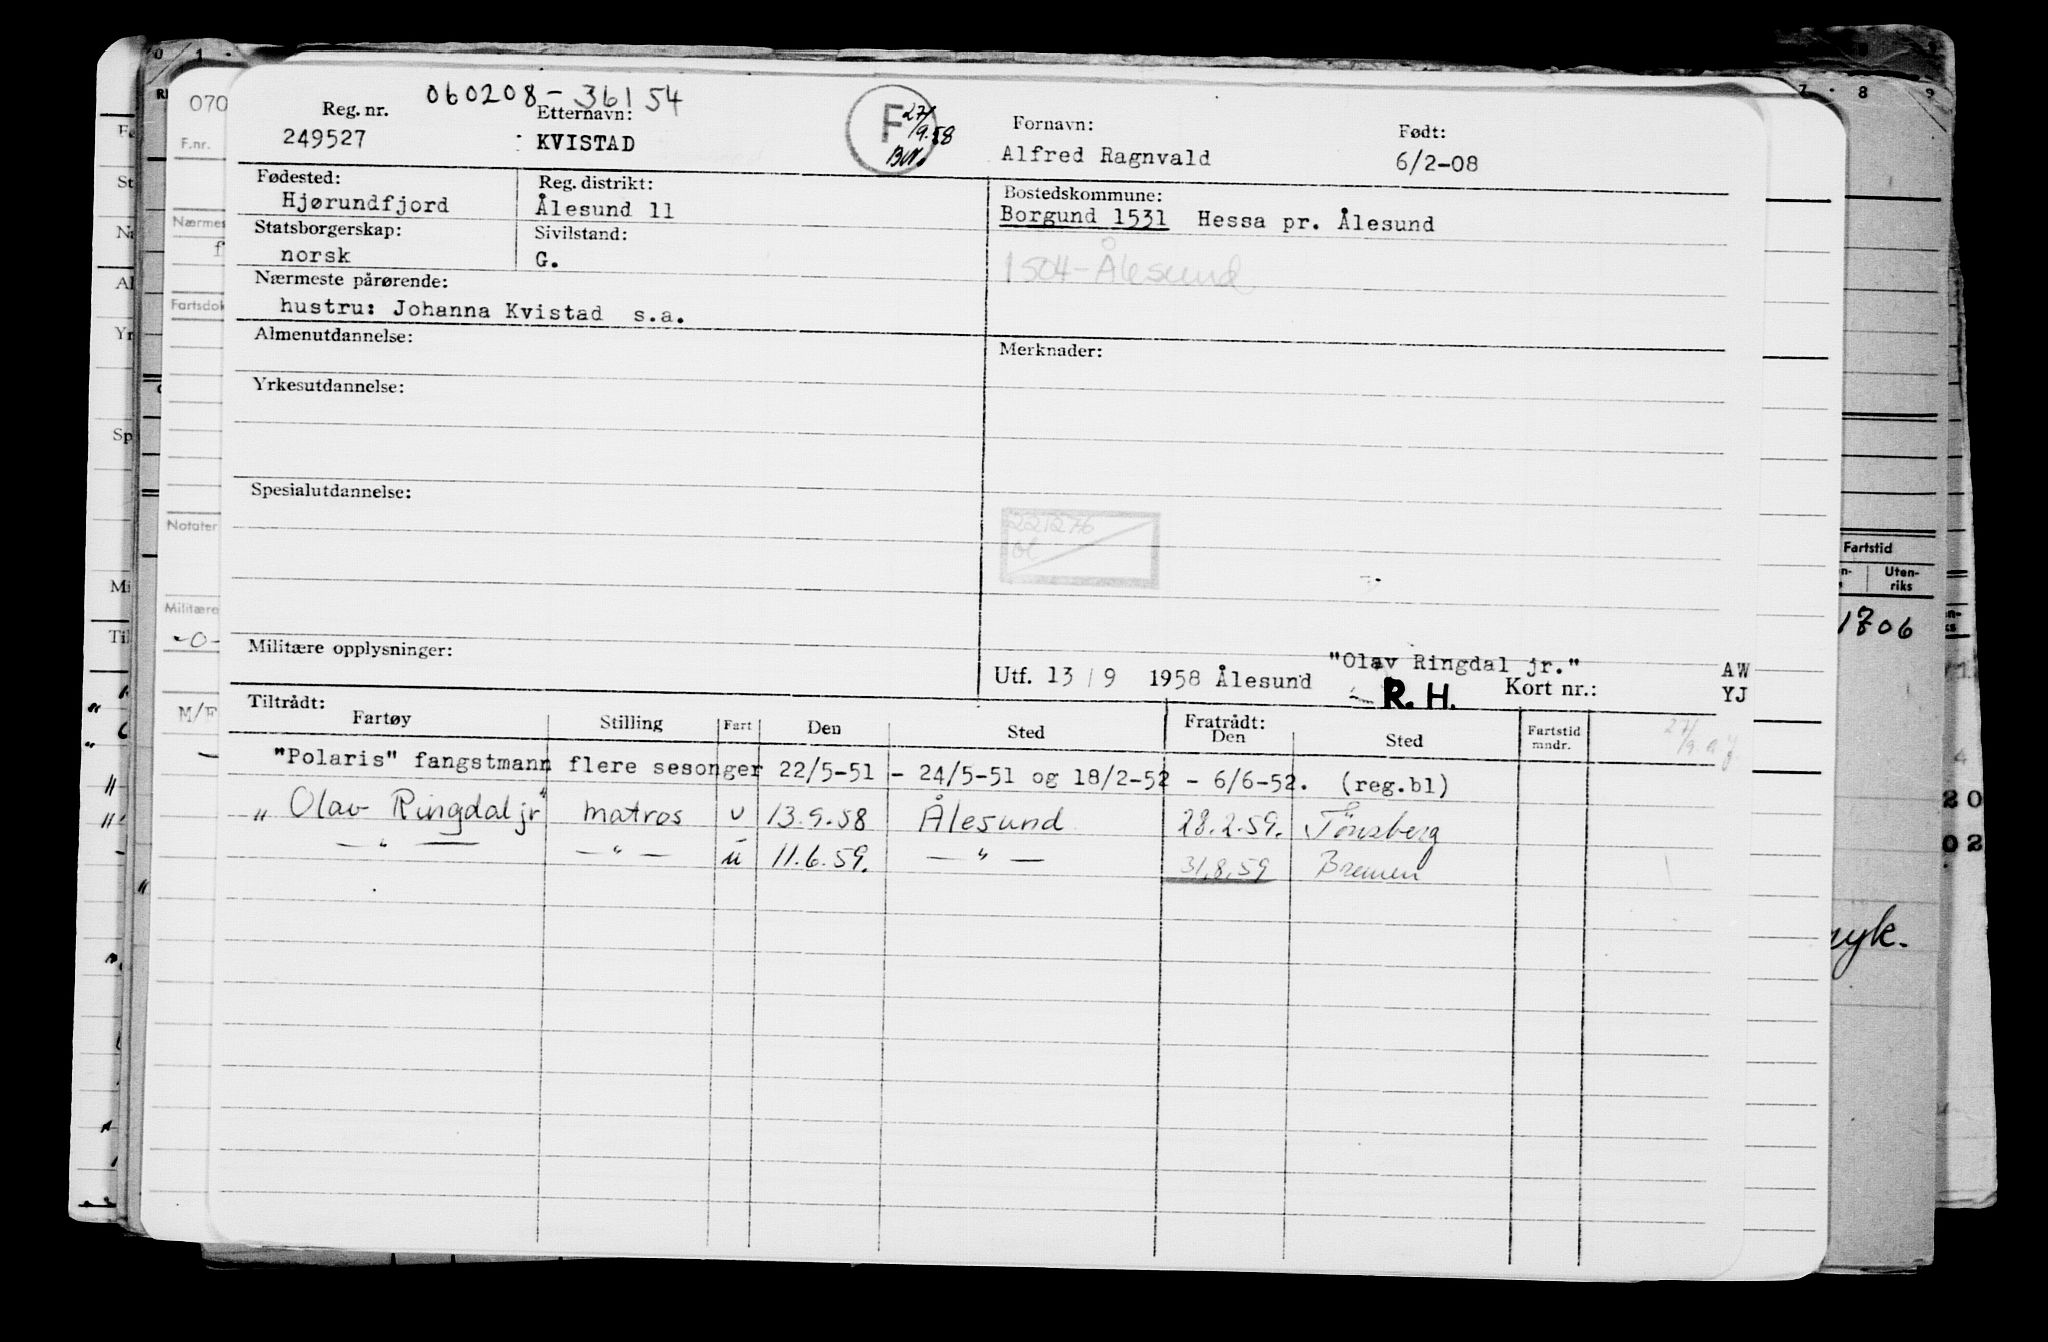 060208-36154
Reg. nr. Etternavn: Fornavn: Født:
249527 KVISTAD F 27/9.58 Alfred Ragnvald 6/2-08
Fødested: Reg. distrikt: Bostedskommune:
Hjørundfjord Ålesund 11 Borgund 1531 Hessa pr. Ålesund
Statsborgerskap: Sivilstand:
norsk G. 1504-Ålesund
Nærmeste pårørende:
hustru: Johanna Kvistad s.a.
Almenutdannelse: Merknader:
Yrkesutdannelse:
Spesialutdannelse:
221276
Militære opplysninger:
"Olav Ringdal jr." AW
Utf. 13/9 1958 Ålesund R. H. Kort nr.: YJ
Tiltrådt: Fratrådt:
Fartøy Stilling Fart Den Sted Den Sted Fartstid mndr.
"Polaris" fangstmann flere sesonger 22/5-51 - 24/5-51 og 18/2-52 - 6/6-52. (reg.bl)
"Olav Ringdal jr" matros u 13.9.58 Ålesund 28.2.59. Tønsberg
— " — — " — u 11.6.59. — " — 31.8.59 Bremen
070
F.nr.
Nærmes
Fartsdok
Notater
Militære
-0-
M/F
Fartstid
Uten-
riks
1706
nyk.
20
02